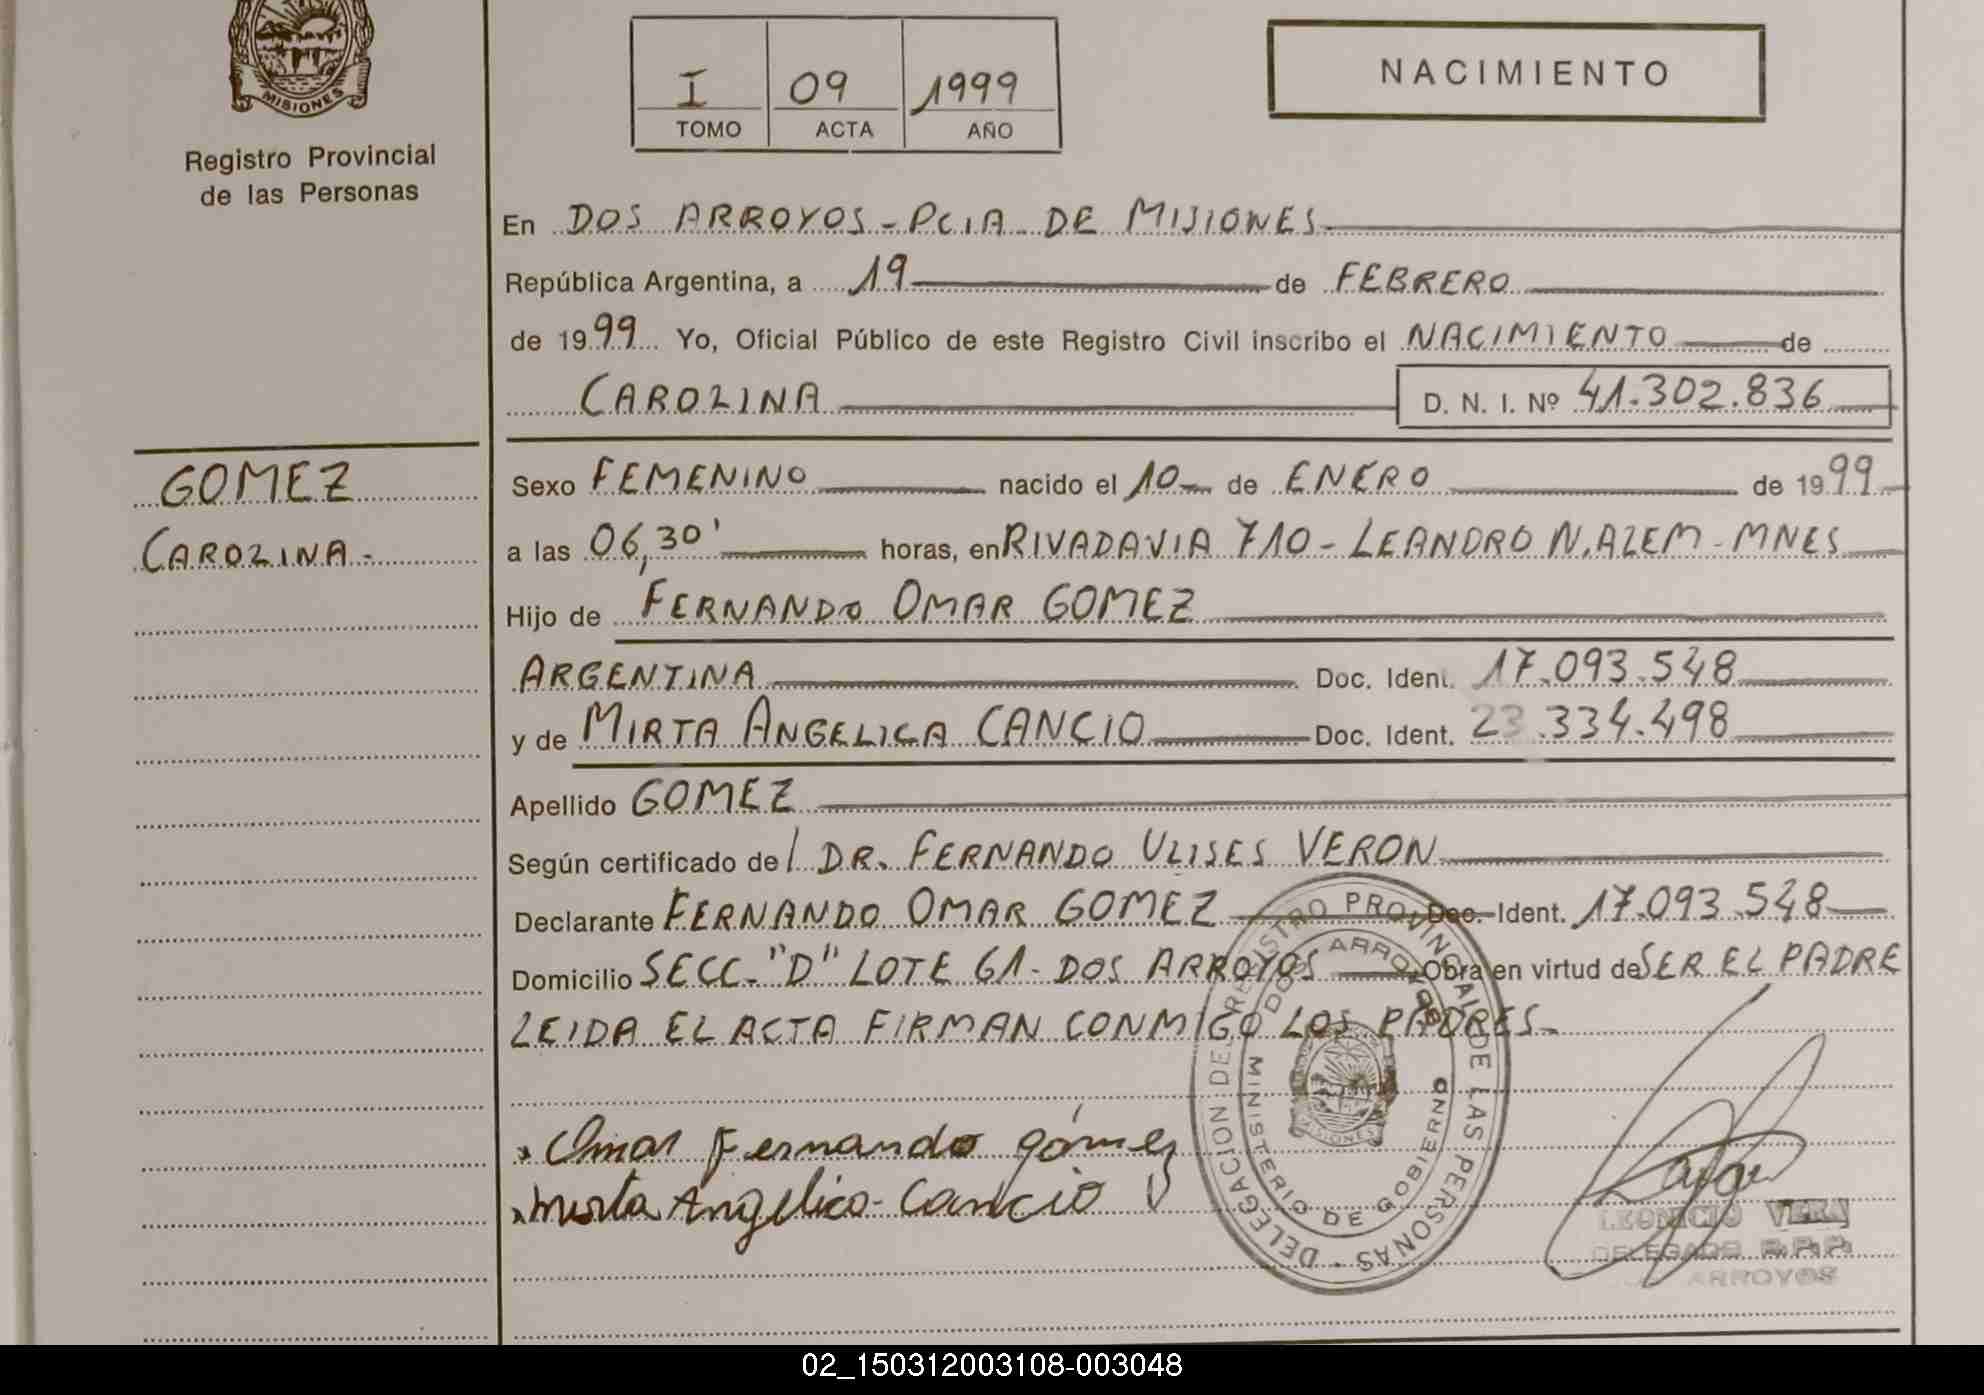 MISIONES
Registro Provincial
de las Personas
I 09 1999
TOMO ACTA AÑO
NACIMIENTO
En DOS ARROYOS - PCIA DE MISIONES
República Argentina, a 19 de FEBRERO
de 1999 Yo, Oficial Público de este Registro Civil inscribo el NACIMIENTO de
CAROLINA D. N. I. Nº 41.302.836
GOMEZ
CAROLINA.-
Sexo FEMENINO nacido el 10 de ENERO de 1999
a las 06,30' horas, en RIVADAVIA 710 - LEANDRO N. ALEM - MNES
Hijo de FERNANDO OMAR GOMEZ
ARGENTINA Doc. Ident. 17.093.548
y de MIRTA ANGELICA CANCIO Doc. Ident. 23.334.498
Apellido GOMEZ
Según certificado de / DR. FERNANDO ULISES VERON
Declarante FERNANDO OMAR GOMEZ Doc. Ident. 17.093.548
Domicilio SECC. "D" LOTE 61 - DOS ARROYOS Obra en virtud de SER EL PADRE
LEIDA EL ACTA FIRMAN CONMIGO LOS PADRES.-
Omar Fernando gómez
Mirta Angelica Cancio
DELEGACION DEL REGISTRO PROVINCIAL DE LAS PERSONAS
DOS ARROYOS
MINISTERIO DE GOBIERNO
MISIONES
LEONICIO VERA
DELEGADO R.P.P.
ARROYOS
02_150312003108-003048